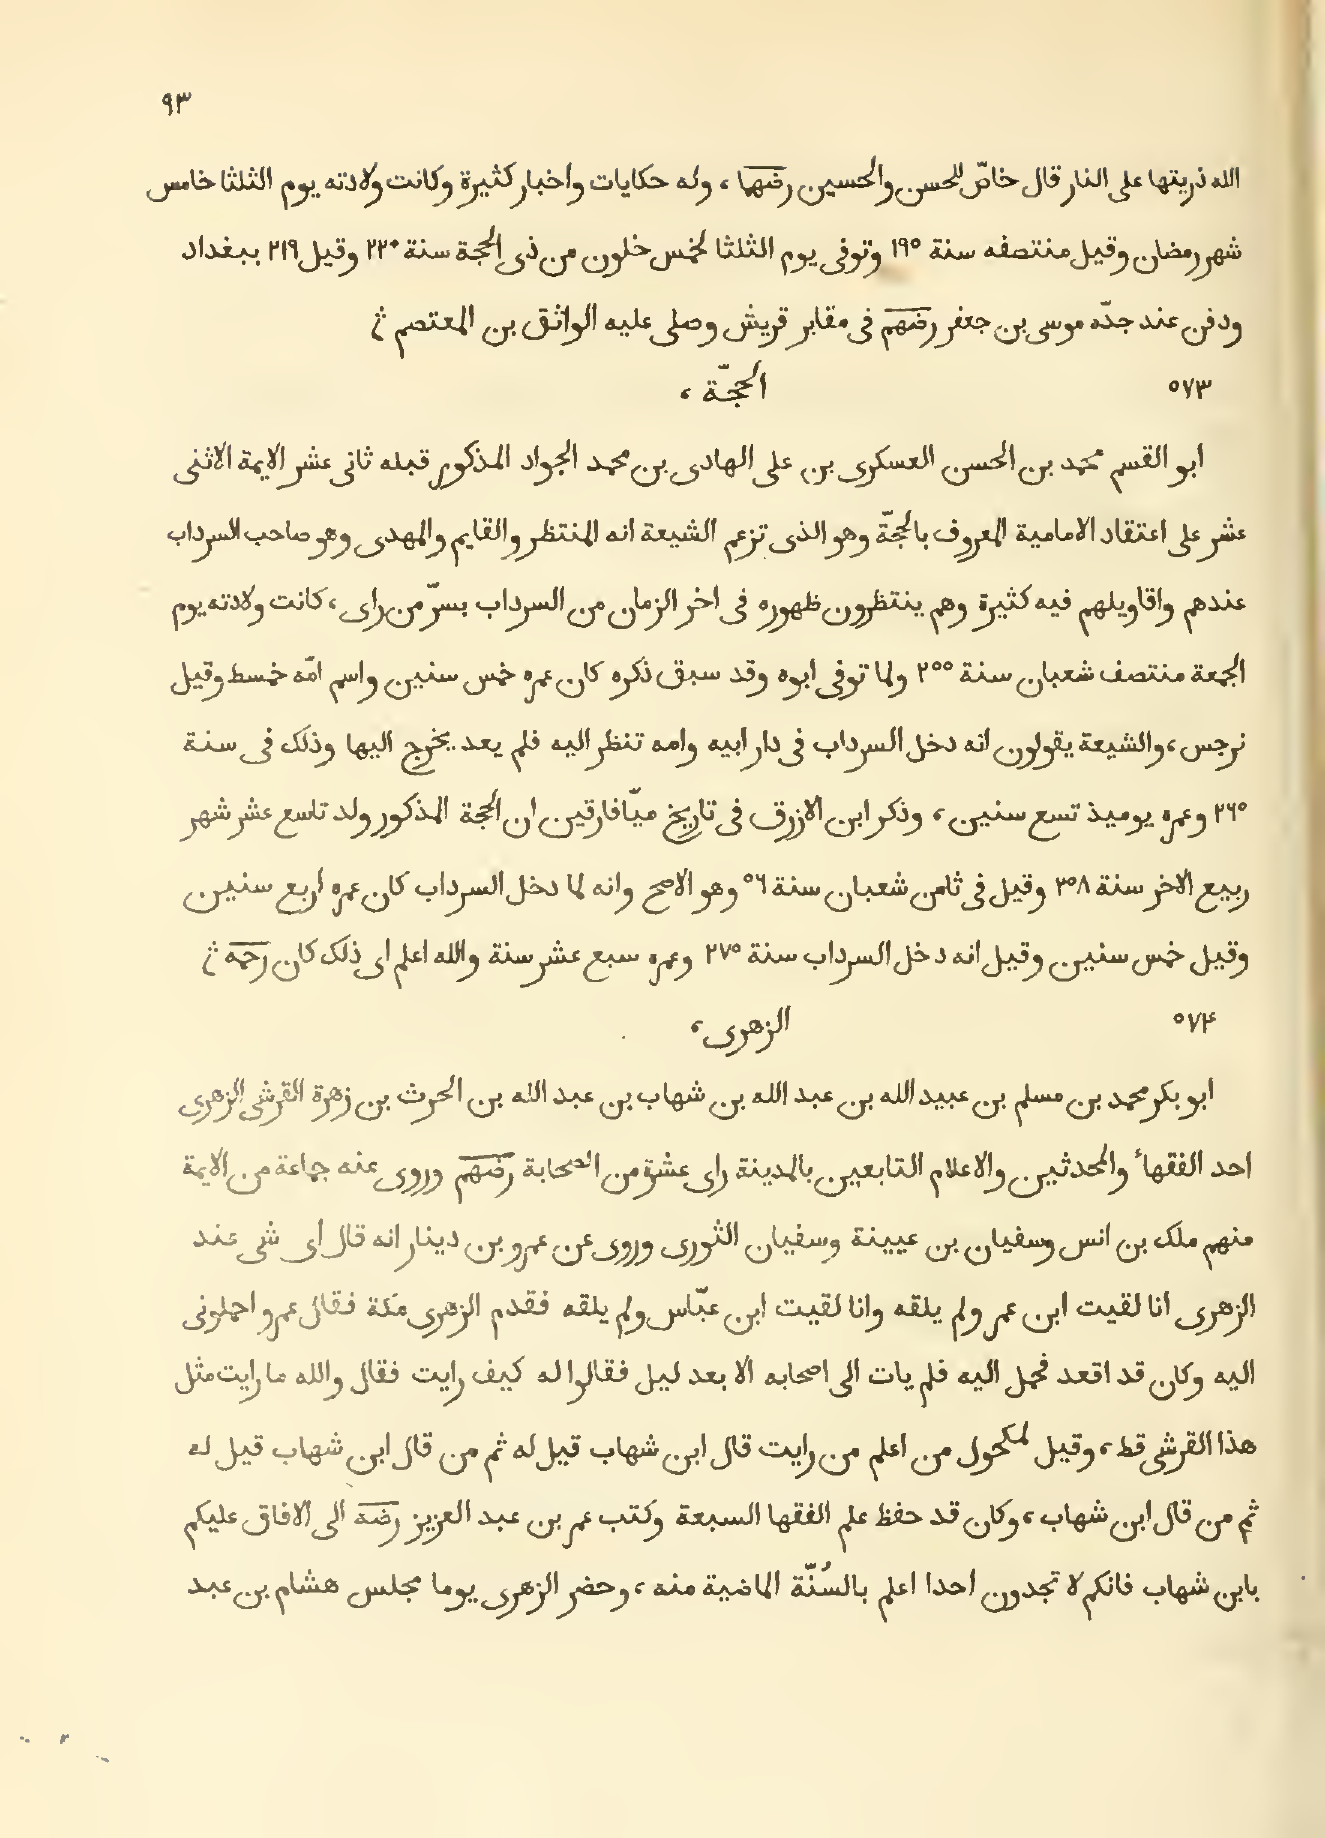 ٩٣
الله ذريتها على النار قال خاصّ للحسن والحسين رضهما ، وله حكايات واخبار كثيرة وكانت ولادته يوم الثلثا خامس
شهر رمضان وقيل منتصفه سنة ١٩٥ وتوفى يوم الثلثا لخمس خلون من ذى الحجة سنة ٢٢٠ وقيل ٢١٩ ببغداد
ودفن عند جدّه موسى بن جعفر رضهم فى مقابر قريش وصلى عليه الواثق بن المعتصم
٥٧٣ الحجّة ،
ابو القسم محمد بن الحسن العسكرى بن على الهادى بن محمد الجواد المذكور قبله ثانى عشر الايمة الاثنى
عشر على اعتقاد الامامية المعروف بالحجّة وهو الذى تزعم الشيعة انه المنتظر والقايم والمهدى وهو صاحب السرداب
عندهم واقاويلهم فيه كثيرة وهم ينتظرون ظهوره فى اخر الزمان من السرداب بسرّ من راى ، كانت ولادته يوم
الجمعة منتصف شعبان سنة ٢٥٥ ولما توفى ابوه وقد سبق ذكره كان عمره خمس سنين واسم امّه خمط وقيل
نرجس ، والشيعة يقولون انه دخل السرداب فى دار ابيه وامه تنظر اليه فلم يعد يخرج اليها وذلك فى سنة
٢٦٥ وعمره يوميذ تسع سنين ، وذكر ابن الازرق فى تاريخ ميّافارقين ان الحجة المذكور ولد تاسع عشر شهر
ربيع الاخر سنة ٢٥٨ وقيل فى ثامن شعبان سنة ٥٦ وهو الاصح وانه لما دخل السرداب كان عمره اربع سنين
وقيل خمس سنين وقيل انه دخل السرداب سنة ٢٧٥ وعمره سبع عشر سنة والله اعلم اى ذلك كان رحمه
٥٧٤ الزهرى ،
ابو بكر محمد بن مسلم بن عبيد الله بن عبد الله بن شهاب بن عبد الله بن الحرث بن زهرة القرشى الزهرى
احد الفقهاء والمحدثين والاعلام التابعين بالمدينة راى عشرة من الصحابة رضهم وروى عنه جماعة من الايمة
منهم ملك بن انس وسفيان بن عيينة وسفيان الثورى وروى عن عمرو بن دينار انه قال اى شى عند
الزهرى انا لقيت ابن عمر ولم يلقه وانا لقيت ابن عبّاس ولم يلقه فقدم الزهرى مكة فقال عمرو احملونى
اليه وكان قد اقعد فحمل اليه فلم يات الى اصحابه الا بعد ليل فقالوا له كيف رايت فقال والله ما رايت مثل
هذا القرشى قط ، وقيل لمكحول من اعلم من رايت قال ابن شهاب قيل له ثم من قال ابن شهاب قيل له
ثم من قال ابن شهاب ، وكان قد حفظ علم الفقها السبعة وكتب عمر بن عبد العزيز رضه الى الافاق عليكم
بابن شهاب فانكم لا تجدون احدا اعلم بالسُنّة الماضية منه ، وحضر الزهرى يوما مجلس هشام بن عبد